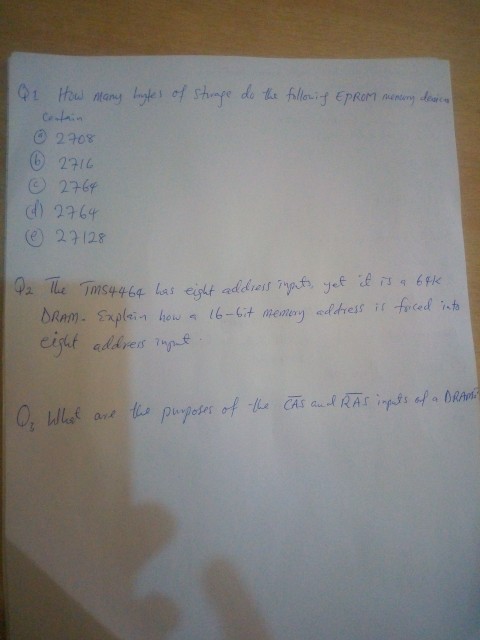 Q1 How many bytes of storage do the following EPROM memory devices
contain
(a) 2708
(b) 2716
(c) 2764
(d) 2764
(e) 27128
Q2 The TMS4464 has eight address inputs, yet it is a 64K
DRAM. Explain how a 16-bit memory address is forced into
eight address input.
Q3 What are the purposes of the C̅A̅S̅ and R̅A̅S̅ inputs of a DRAM?